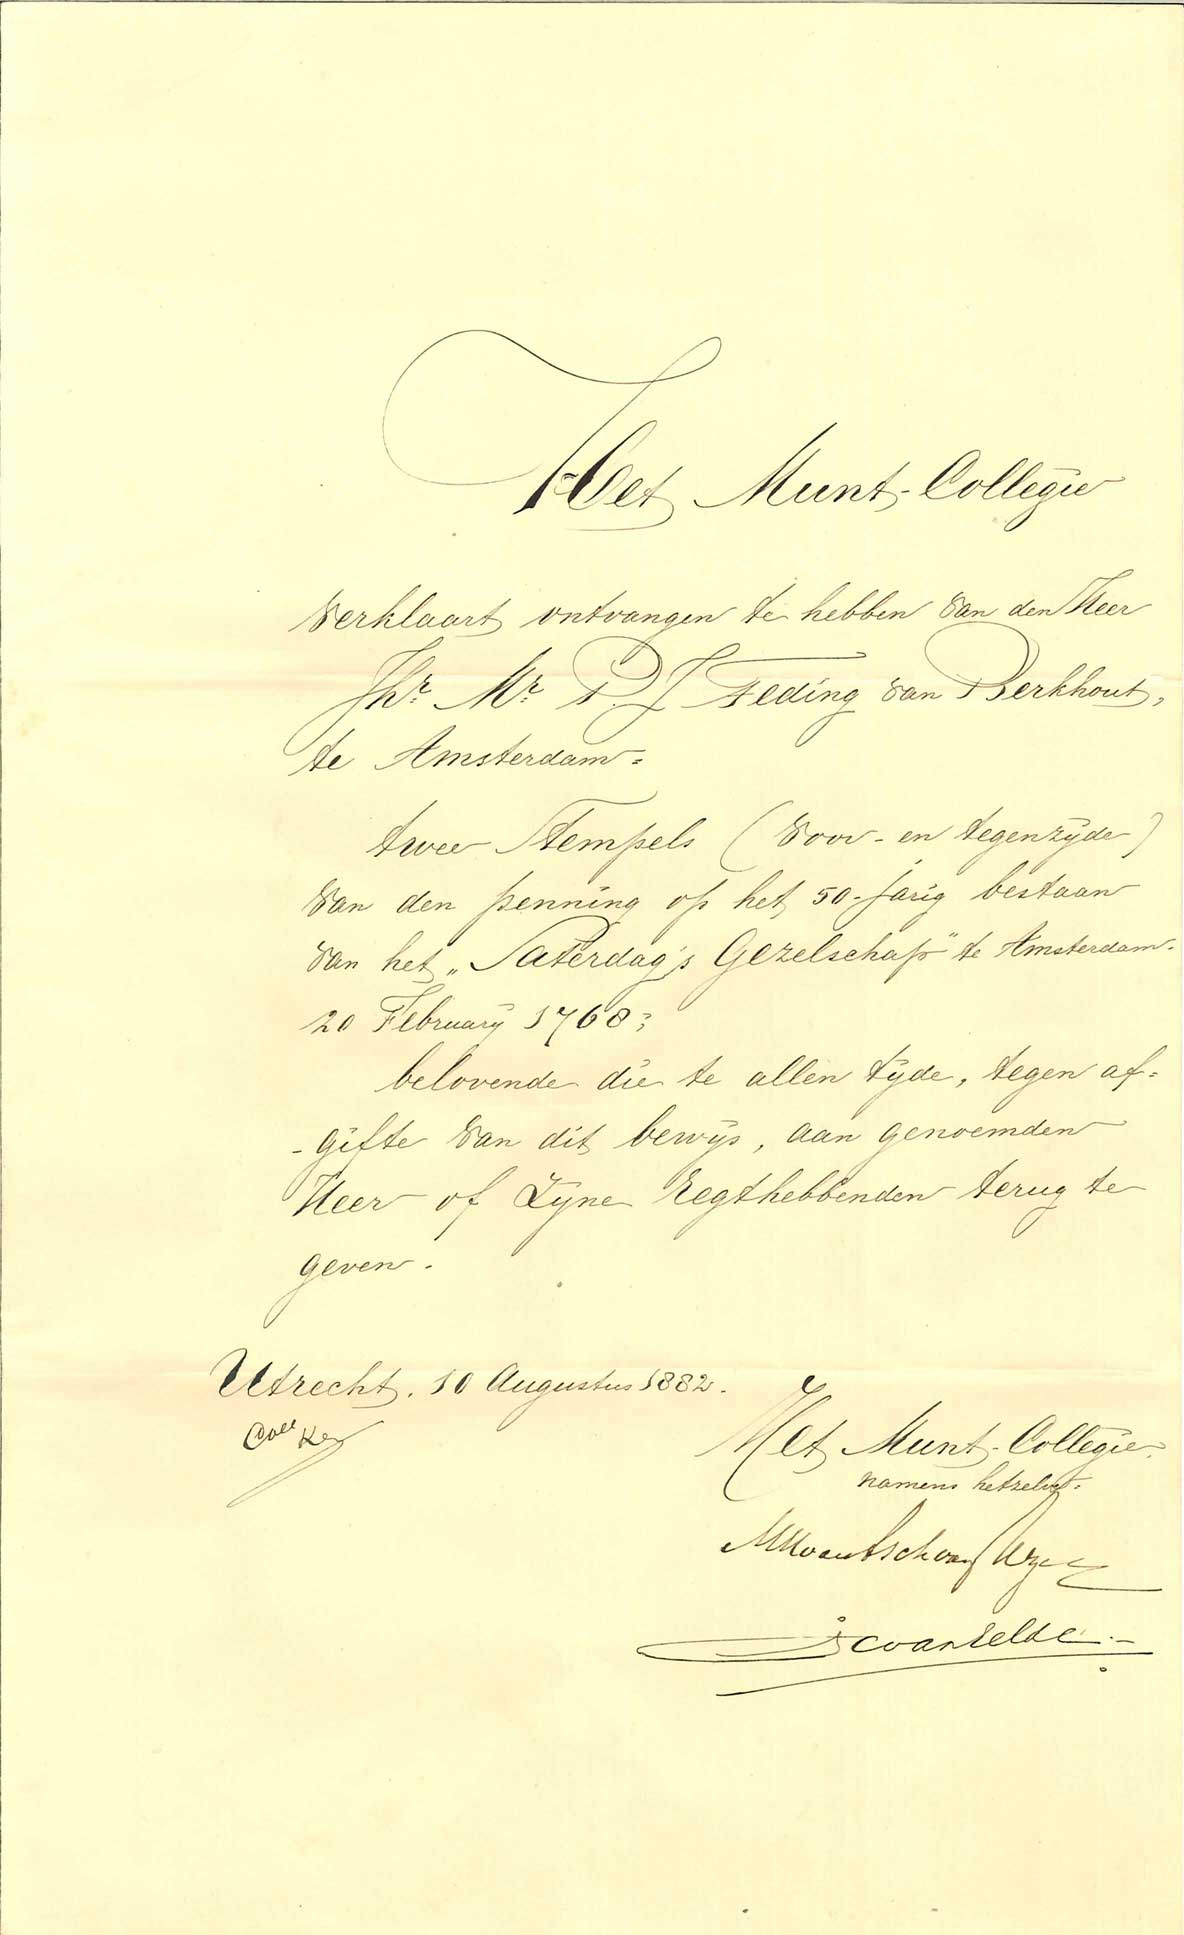 Het Munt-Collegie
verklaart ontvangen te hebben van den Heer
Jhr. Mr. P. J. Teding van Berkhout,
te Amsterdam =
twee Stempels (voor- en tegenzijde)
van den penning op het 50-jarig bestaan
van het „Saterdag's Gezelschap" te Amsterdam.
20 February 1768;
belovende die te allen tijde, tegen af=
-gifte van dit bewijs, aan genoemden
Heer of Zijne Regthebbenden terug te
geven.
Utrecht, 10 Augustus 1882.
Coll
Het Munt-Collegie.
namens hetzelve.